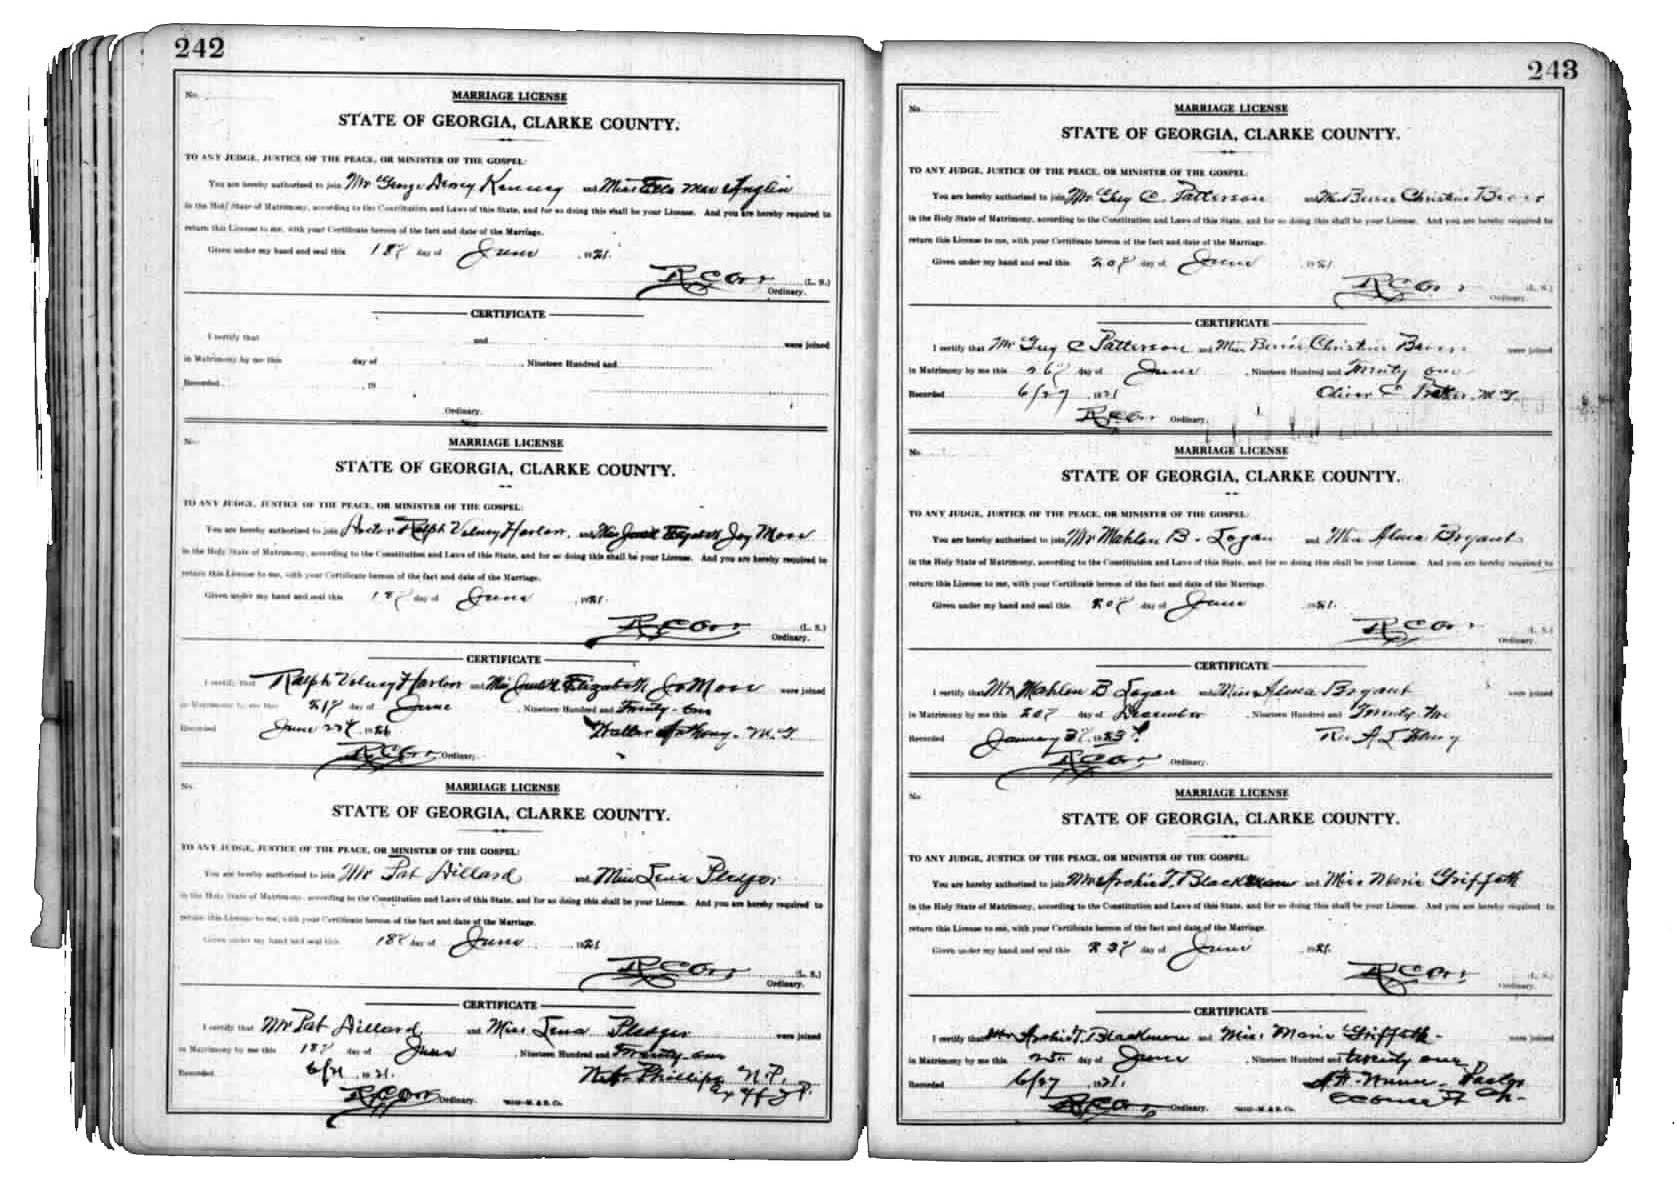 242
No.
MARRIAGE LICENSE
STATE OF GEORGIA, CLARKE COUNTY.
TO ANY JUDGE, JUSTICE OF THE PEACE, OR MINISTER OF THE GOSPEL:
You are hereby authorized to join Mr George Dewey and Miss Mae Anglin
in the Holy State of Matrimony, according to the Constitution and Laws of this State, and for so doing this shall be your License. And you are hereby required to
return this License to me, with your Certificate hereon of the fact and date of the Marriage.
Given under my hand and seal this 18 day of June , 1921.
R C Orr (L. S.)
Ordinary.
CERTIFICATE
I certify that and were joined
in Matrimony by me this day of , Nineteen Hundred and
Recorded , 19
Ordinary.
No.
MARRIAGE LICENSE
STATE OF GEORGIA, CLARKE COUNTY.
TO ANY JUDGE, JUSTICE OF THE PEACE, OR MINISTER OF THE GOSPEL:
You are hereby authorized to join Ralph Volney Harlan, and Miss Moss
in the Holy State of Matrimony, according to the Constitution and Laws of this State, and for so doing this shall be your License. And you are hereby required to
return this License to me, with your Certificate hereon of the fact and date of the Marriage.
Given under my hand and seal this 18 day of June , 1921.
R C Orr (L. S.)
Ordinary.
CERTIFICATE
I certify that Ralph Volney Harlan and Miss Elizabeth Moss were joined
in Matrimony by me this 21 day of June , Nineteen Hundred and Twenty-one
Recorded June Walter Anthony. M. G.
R C Orr Ordinary.
No.
MARRIAGE LICENSE
STATE OF GEORGIA, CLARKE COUNTY.
TO ANY JUDGE, JUSTICE OF THE PEACE, OR MINISTER OF THE GOSPEL:
You are hereby authorized to join Mr Pat Dillard and Miss Lena Pledger
in the Holy State of Matrimony, according to the Constitution and Laws of this State, and for so doing this shall be your License. And you are hereby required to
return this License to me, with your Certificate hereon of the fact and date of the Marriage.
Given under my hand and seal this 18 day of June 1921
R C Orr (L. S.)
Ordinary.
CERTIFICATE
I certify that Mr Pat Dillard and Miss Lena Pledger were joined
in Matrimony by me this 18 day of June , Nineteen Hundred and Twenty-one
Recorded 6/21 , 1921. Phillips N. P.
R C Orr Ordinary. J. P.
243
No.
MARRIAGE LICENSE
STATE OF GEORGIA, CLARKE COUNTY.
TO ANY JUDGE, JUSTICE OF THE PEACE, OR MINISTER OF THE GOSPEL:
You are hereby authorized to join Mr Guy C. Patterson and Miss Christine
in the Holy State of Matrimony, according to the Constitution and Laws of this State, and for so doing this shall be your License. And you are hereby required to
return this License to me, with your Certificate hereon of the fact and date of the Marriage.
Given under my hand and seal this 20 day of June , 1921.
R C Orr (L. S.)
Ordinary.
CERTIFICATE
I certify that Mr Guy C Patterson and Miss Christine were joined
in Matrimony by me this 26 day of June , Nineteen Hundred and Twenty one
Recorded 6/27 , 1921 Oliver C M. G.
R C Orr Ordinary.
No.
MARRIAGE LICENSE
STATE OF GEORGIA, CLARKE COUNTY.
TO ANY JUDGE, JUSTICE OF THE PEACE, OR MINISTER OF THE GOSPEL:
You are hereby authorized to join Mr Mahlon B. Logan and Miss Alma Bryant
in the Holy State of Matrimony, according to the Constitution and Laws of this State, and for so doing this shall be your License. And you are hereby required to
return this License to me, with your Certificate hereon of the fact and date of the Marriage.
Given under my hand and seal this 20 day of June 1921.
R C Orr (L. S.)
Ordinary.
CERTIFICATE
I certify that Mr Mahlon B Logan and Miss Alma Bryant were joined
in Matrimony by me this 20 day of December , Nineteen Hundred and Twenty-two
Recorded January 3 Rev A
R C Orr Ordinary.
No.
MARRIAGE LICENSE
STATE OF GEORGIA, CLARKE COUNTY.
TO ANY JUDGE, JUSTICE OF THE PEACE, OR MINISTER OF THE GOSPEL:
You are hereby authorized to join Mr Archie T. Blackmon and Miss Marie Griffeth
in the Holy State of Matrimony, according to the Constitution and Laws of this State, and for so doing this shall be your License. And you are hereby required to
return this License to me, with your Certificate hereon of the fact and date of the Marriage.
Given under my hand and seal this 23 day of June , 1921.
R C Orr (L. S.)
Ordinary.
CERTIFICATE
I certify that Mr Archie T. Blackmon and Miss Marie Griffeth were joined
in Matrimony by me this day of June , Nineteen Hundred and twenty one
Recorded 6/27 , 1921. Pastor
R C Orr Ordinary. Ch.